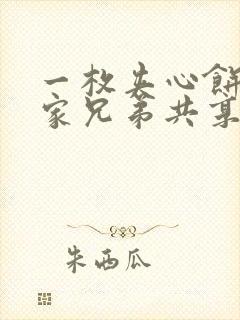 一枚夹心餅
家兄弟共
朱西瓜